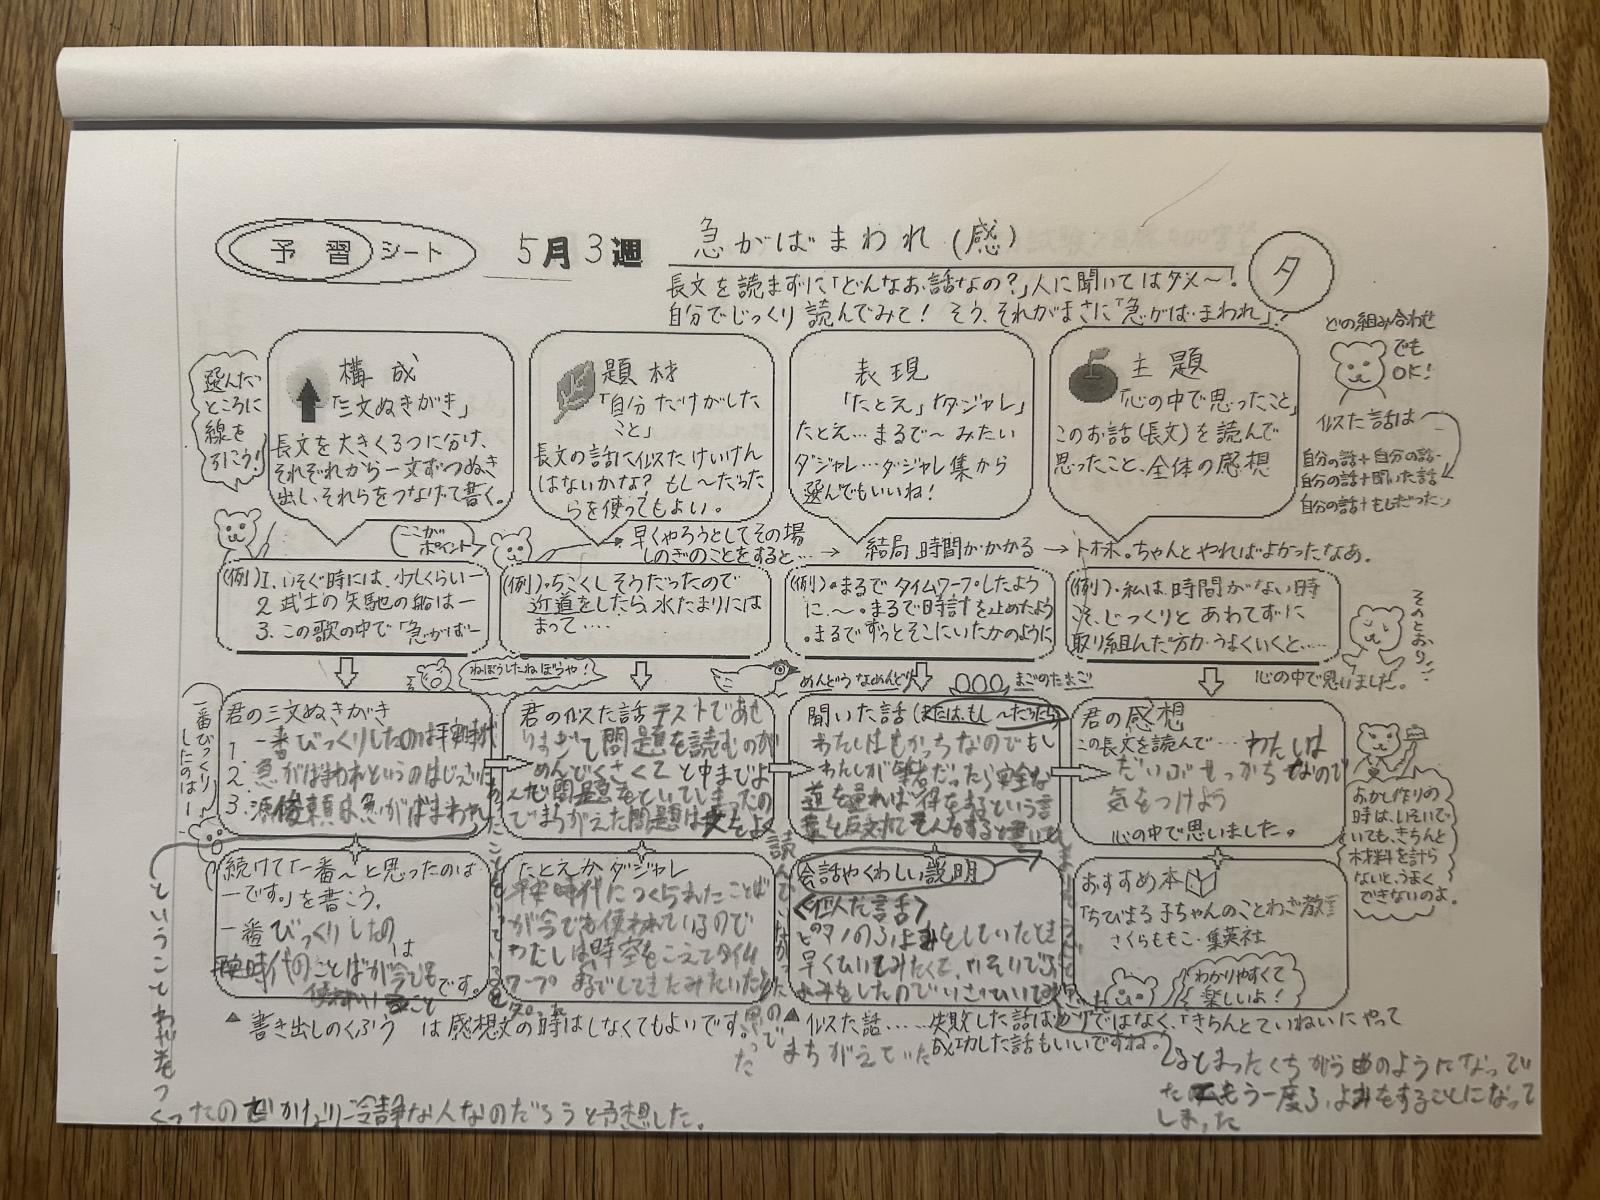 予習シート 5月3週 急がばまわれ(感)
タ
長文を読まずに「どんなお話なの?」人に聞いてはダメ〜!
自分でじっくり読んでみて! そう、それがまさに「急がば・まわれ」!
選んだ
ところに
線を
引こう!
構成
「三文ぬきがき」
長文を大きく3つに分け、
それぞれから一文ずつぬき
出し、それらをつなげて書く。
題材
「自分だけがした
こと」
長文の話に似たけいけん
はないかな? もし〜だった
らを使ってもよい。
表現
「たとえ」「ダジャレ」
たとえ…まるで〜みたい
ダジャレ…ダジャレ集から
選んでもいいね!
主題
「心の中で思ったこと」
このお話(長文)を読んで
思ったこと、全体の感想
どの組み合わせ
でも
OK!
似た話は
自分の話+自分の話
自分の話+聞いた話
自分の話+もしだった
ここが
ポイント
早くやろうとしてその場
しのぎのことをすると…→
結局時間がかかる→トホホ。ちゃんとやればよかったなあ。
(例)1. いそぐ時には、少しくらいー
2. 武士の矢馳の船はー
3. この歌の中で「急がばー
(例)・ちこくしそうだったので
近道をしたら水たまりには
まって‥‥
(例)・まるでタイムワープしたよう
に、〜。まるで時計を止めたよう
・まるでずっとそこにいたかのように
(例)・私は、時間がない時
こそ、じっくりとあわてずに
取り組んだ方がうまくいくと……
心の中で思いました。
そのとおり!!
ねぼうしたねぼうや!
めんどうなめんどり
まごのたまご
一番びっくり
したのはー
君の三文ぬきがき
1. 一番びっくりしたのは平安時代
2. 急がばまわれというのは
3. 源俊頼は急がばまわれ
ということわざをつ
くったのでかなり冷静な人なのだろうと予想した。
君の似た話 テストであせ
りすぎて問題を読むのが
めんどくさくてと中までよ
んで問題をといてしまったの
でまちがえた問題は文をよく
読んでいなかった
ので
まちがえていた
聞いた話(または、もし〜だったら)
わたしはせっかちなのでもし
わたしが筆者だったら安全な
道を通れば得をするという言
葉と反対で
君の感想
この長文を読んで… わたしは
だいぶせっかちなので
気をつけよう
心の中で思いました。
おかし作りの
時は、いそいで
いても、きちんと
材料を計ら
ないと、うまく
できないのよ。
続けて「一番〜と思ったのは
ーです。」を書こう。
一番びっくりしたの
は
平安時代のことばが今でも
使われていることです。
たとえかダジャレ
平安時代につくられたことば
が今でも使われているので
わたしは時空をこえてタイム
ワープまでしてきたみたいだと
思った
会話やくわしい説明
<似た話>
ピアノのふよみをしていたとき
早くひいてみたくて、いそいでふ
よみをしたのでいざひいてみ
るとまったくちがう曲のようになってい
たのでもう一度ふよみをすることになって
しまった
おすすめ本
「ちびまる子ちゃんのことわざ教室」
さくらももこ・集英社
わかりやすくて
楽しいよ!
▲書き出しのくふう は感想文の時はしなくてもよいです。
▲似た話……失敗した話ばかりではなく、「きちんとていねいにやって
成功した話もいいですね。」